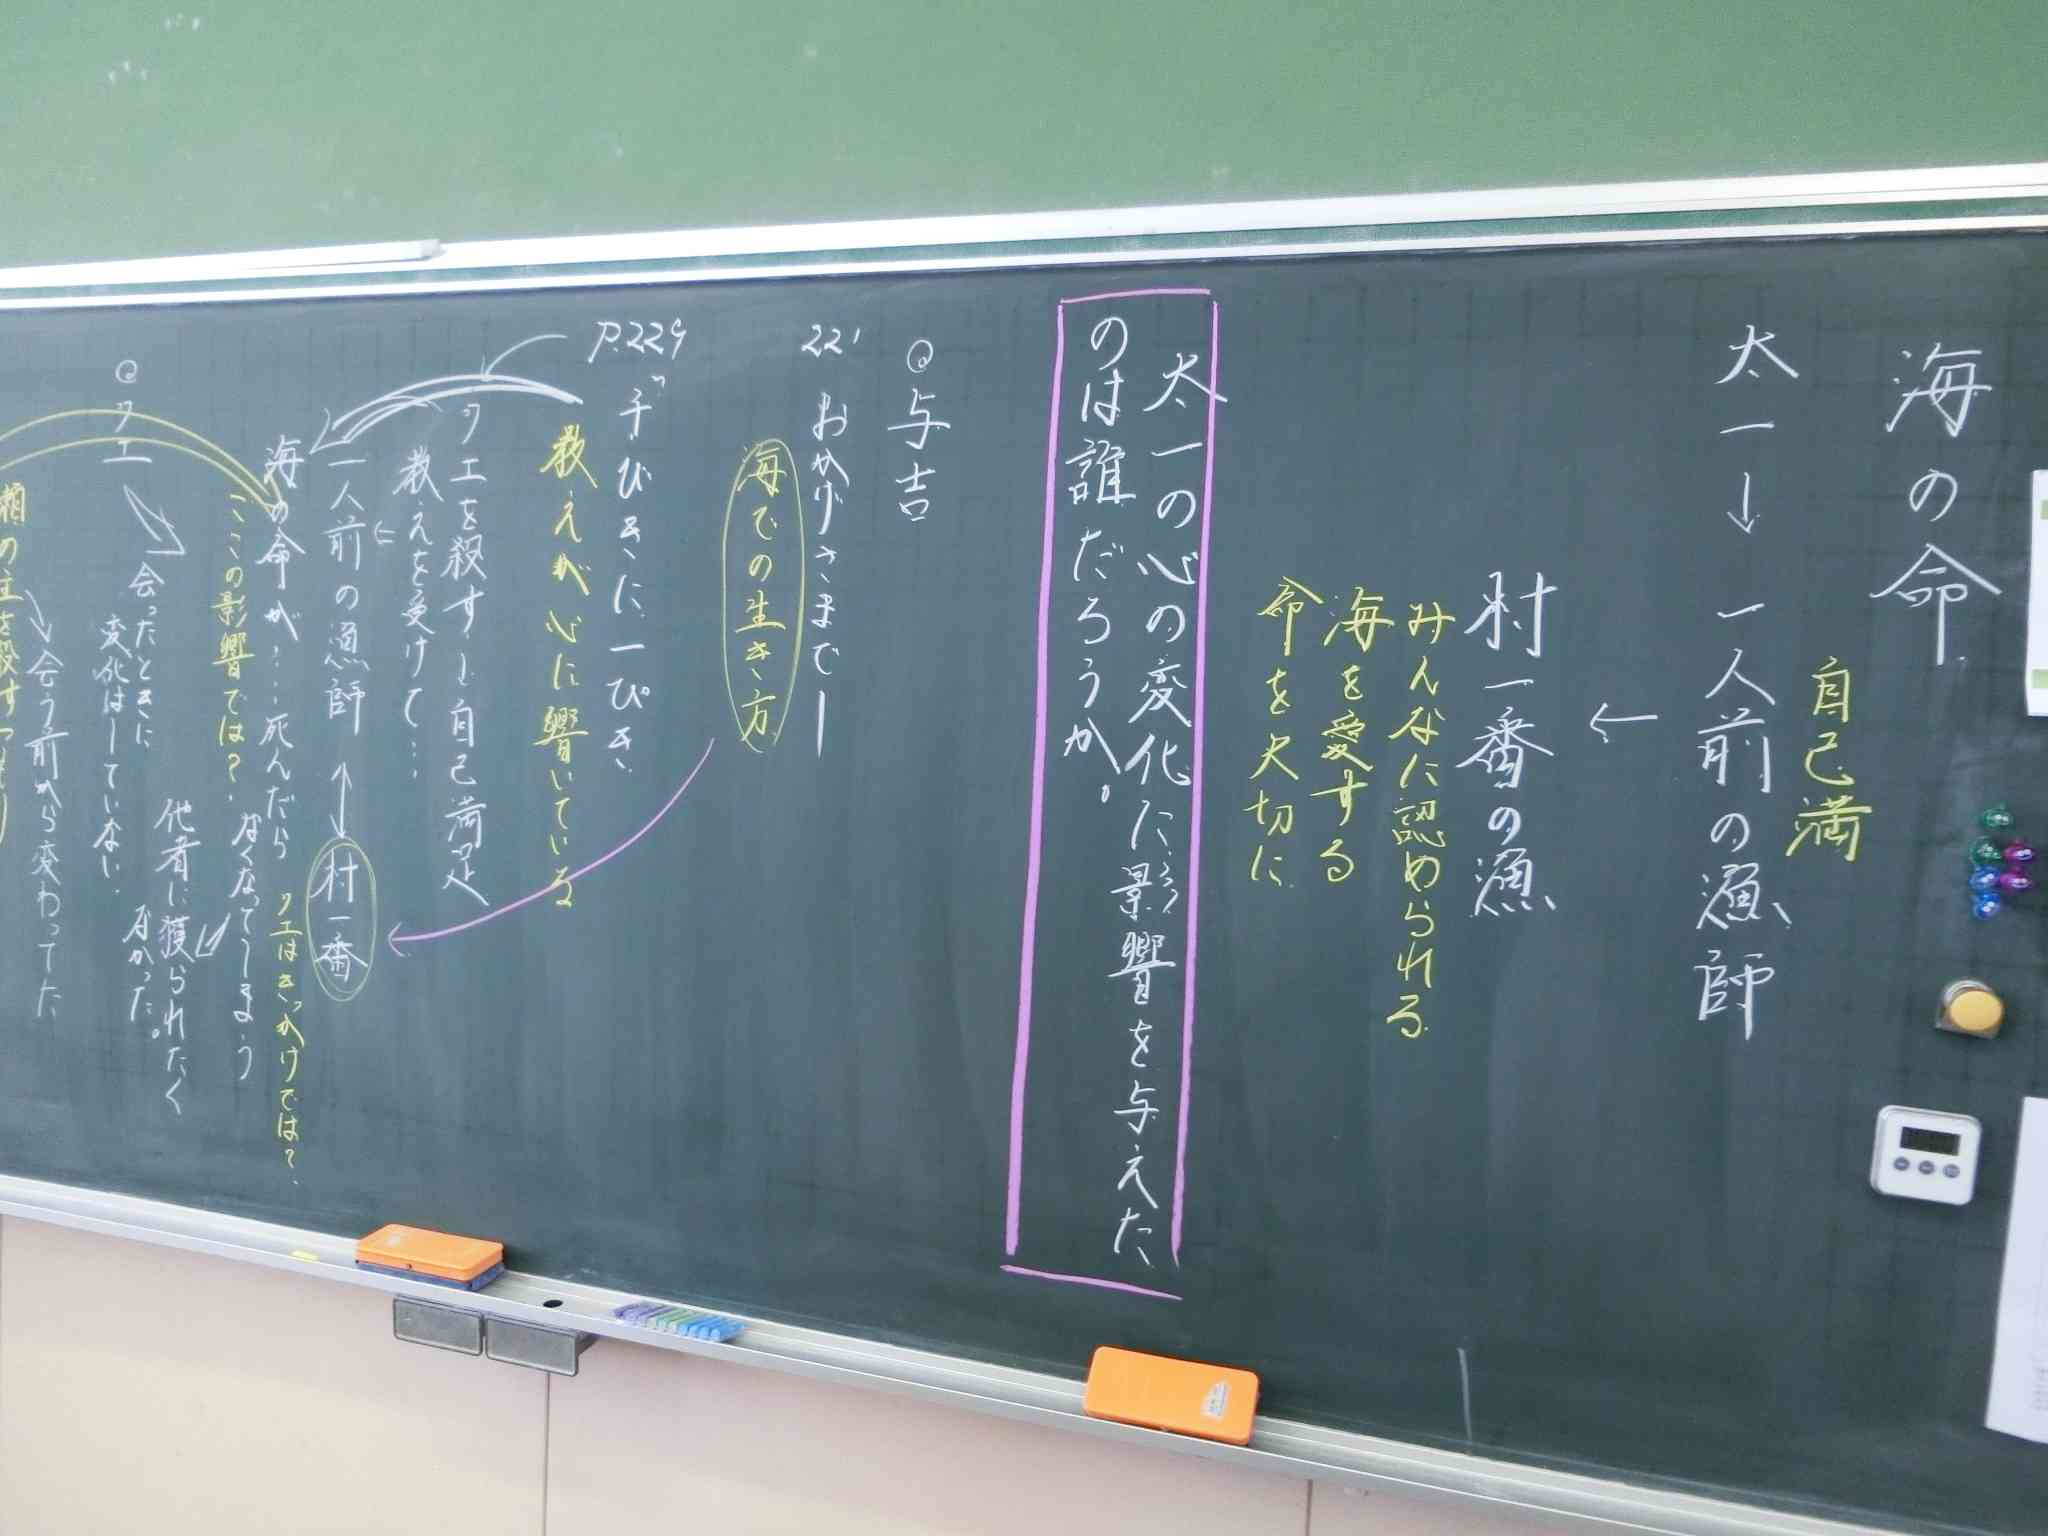 海の命
自己満
太一→一人前の漁師
←
村一番の漁
みんなに認められる
海を愛する
命を大切に
太一の心の変化に影響を与えた
のは誰だろうか。
◎与吉
221 おかげさまでー
海での生き方
P.229 千びきに一ぴき
教えが心に響いている
クエを殺す→自己満足
教えを受けて…
一人前の漁師↔村一番
海の命が…死んだら
クエはきっかけでは？
なくなってしまう
ここの影響では？
◎クエ
会ったときに
変化はしていない。
他者に獲られたく
なかった。
会う前から変わってた
瀬の主を殺すつもり